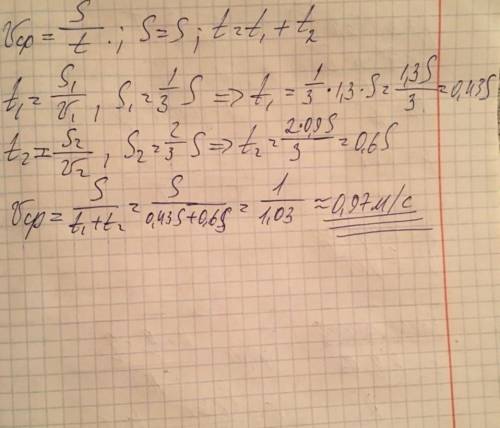 Vср = S/t . ; S = S ; t = t₁ + t₂
t₁ = S₁/V₁ , S₁ = 1/3 S => t₁ = 1/3 · 1,3 · S = 1,3S/3 = 0,43S
t₂ = S₂/V₂ , S₂ = 2/3 S => t₂ = 2·0,9S/3 = 0,6S
Vср = S/(t₁+t₂) = S/(0,43S+0,6S) = 1/1,03 ≈ 0,97 м/с